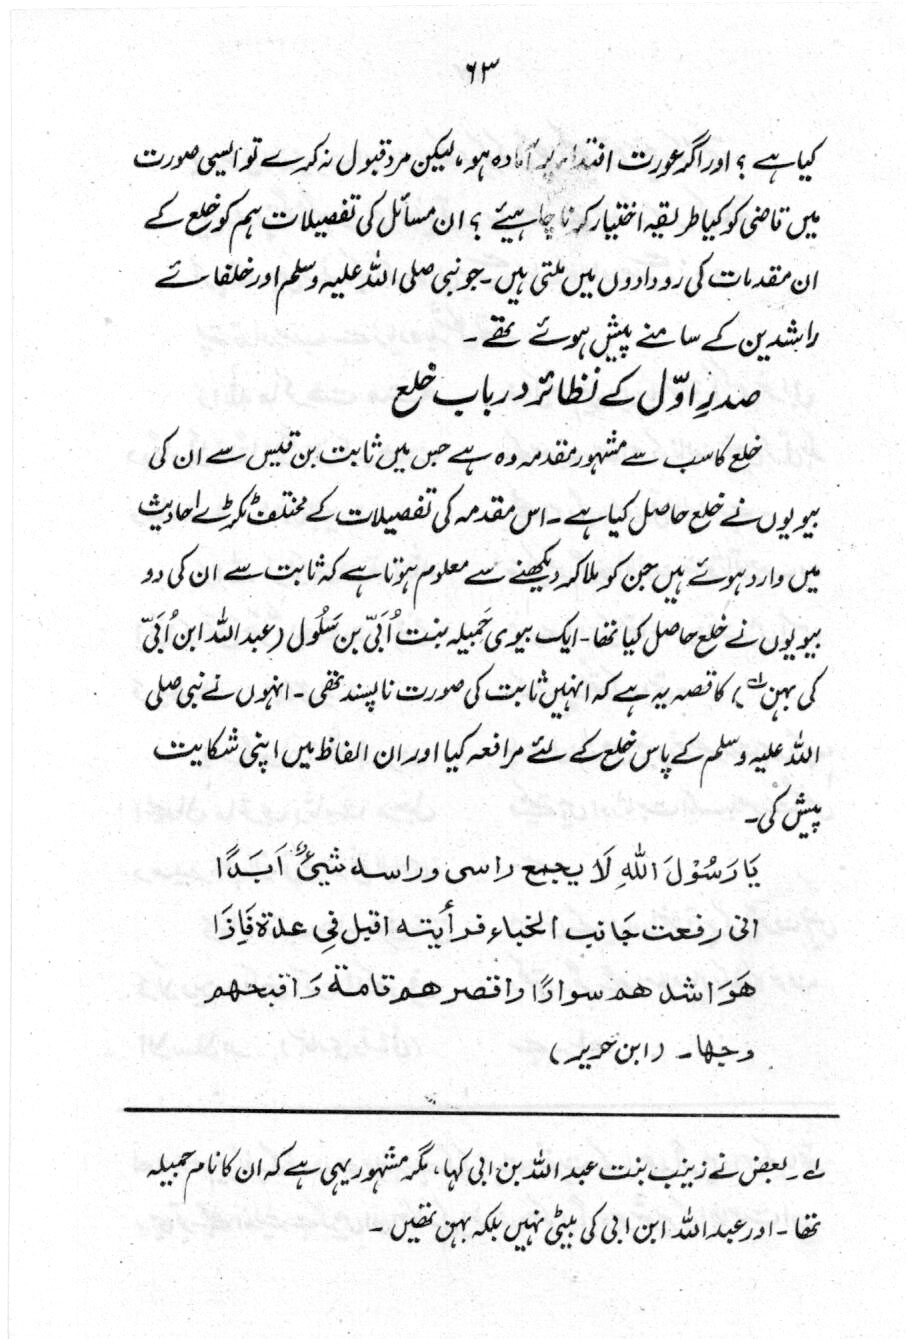 ۶۳
کیا ہے ؟ اور اگر عورت افتداء پر آمادہ ہو، لیکن مرد قبول نہ کرے تو ایسی صورت
میں قاضی کو کیا طریقہ اختیار کرنا چاہیئے ؟ ان مسائل کی تفصیلات ہم کو خلع کے
ان مقدمات کی رودادوں میں ملتی ہیں۔ جو نبی صلی اللہ علیہ وسلم اور خلفائے
راشدین کے سامنے پیش ہوئے تھے۔
صدرِ اوّل کے نظائر در باب خلع
خلع کا سب سے مشہور مقدمہ وہ ہے جس میں ثابت بن قیس سے ان کی
بیویوں نے خلع حاصل کیا ہے۔ اس مقدمہ کی تفصیلات کے مختلف ٹکڑے احادیث
میں وارد ہوئے ہیں جن کو ملا کر دیکھنے سے معلوم ہوتا ہے کہ ثابت سے ان کی دو
بیویوں نے خلع حاصل کیا تھا۔ ایک بیوی جَمیلہ بنت اُبَیّ بن سَلُول (عبد اللہ ابن اُبَیّ
کی بہن لہ) کا قصہ یہ ہے کہ انہیں ثابت کی صورت ناپسند تھی۔ انہوں نے نبی صلی
اللہ علیہ وسلم کے پاس خلع کے لئے مرافعہ کیا اور ان الفاظ میں اپنی شکایت
پیش کی۔
یَا رَسُوْلَ اللہِ لَا یجمع راسی وراسہ شیئٌ اَبَدًا
انی رفعت جَانب الخباء فرأیتہ اقبل فِی عدۃ فَاِذَا
ھَوَ اشد ھم سوادًا واقصر ھم قامۃ وَ اقبحھم
وجھا۔ (ابن جریر)
لہ۔ بعض نے زینب بنت عبد اللہ بن ابی کہا، مگر مشہور یہی ہے کہ ان کا نام جمیلہ
تھا۔ اور عبد اللہ ابن ابی کی بیٹی نہیں بلکہ بہن تھیں۔